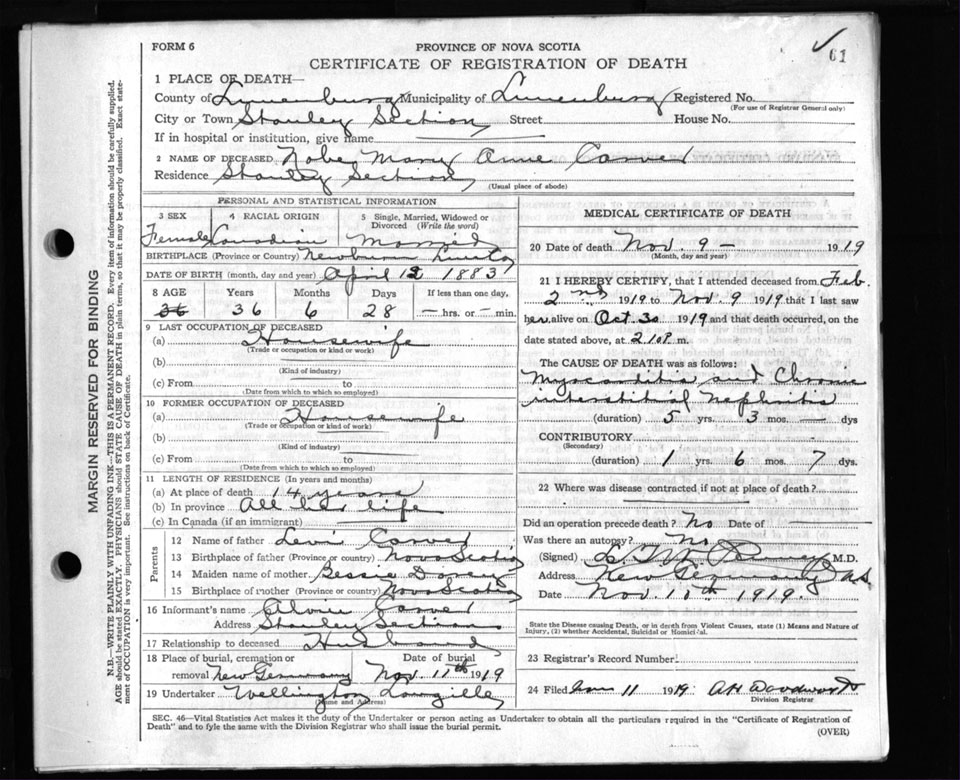 61
FORM 6
PROVINCE OF NOVA SCOTIA
CERTIFICATE OF REGISTRATION OF DEATH
1 PLACE OF DEATH—
County of Lunenburg Municipality of Lunenburg Registered No.
(For use of Registrar General only)
City or Town Stanley Section Street House No.
If in hospital or institution, give name
2 NAME OF DECEASED Mary Anne Carver
Residence Stanley Section
(Usual place of abode)
PERSONAL AND STATISTICAL INFORMATION
3 SEX 4 RACIAL ORIGIN 5 Single, Married, Widowed or Divorced (Write the word)
Female Canadian Married
BIRTHPLACE (Province or Country) Newburn
DATE OF BIRTH (month, day and year) April 12 1883
8 AGE Years Months Days If less than one day,
36 36 6 28 — hrs. or — min.
9 LAST OCCUPATION OF DECEASED
(a) Housewife
(Trade or occupation or kind or work)
(b)
(Kind of industry)
(c) From to
(Date from which to which so employed)
10 FORMER OCCUPATION OF DECEASED
(a) Housewife
(Trade or occupation or kind of work)
(b)
(Kind of industry)
(c) From to
(Date from which to which so employed)
11 LENGTH OF RESIDENCE (In years and months)
(a) At place of death 14 years
(b) In province All her life
(c) In Canada (if an immigrant)
Parents
12 Name of father Levi Carver
13 Birthplace of father (Province or country) Nova Scotia
14 Maiden name of mother Bessie Dorey
15 Birthplace of mother (Province or country) Nova Scotia
16 Informant's name Alvin Carver
Address Stanley Section
17 Relationship to deceased Husband
18 Place of burial, cremation or removal New Germany Date of burial Nov. 11th 1919
19 Undertaker Wellington Langille
(Name and Address)
MEDICAL CERTIFICATE OF DEATH
20 Date of death Nov. 9 — 1919
(Month, day and year)
21 I HEREBY CERTIFY, that I attended deceased from Feb.
2nd 1919 to Nov. 9 1919 that I last saw
her alive on Oct. 30 1919 and that death occurred, on the
date stated above, at 2 10 P. m.
The CAUSE OF DEATH was as follows:
Myocarditis and Chronic
interstitial Nephritis
(duration) 5 yrs. 3 mos. — dys
CONTRIBUTORY
(Secondary)
(duration) 1 yrs. 6 mos. 7 dys.
22 Where was disease contracted if not at place of death?
Did an operation precede death? No Date of —
Was there an autopsy? No
(Signed) M.D.
Address New Germany N.S.
Date Nov. 11th 1919.
State the Disease causing Death, or in death from Violent Causes, state (1) Means and Nature of
Injury, (2) whether Accidental, Suicidal or Homicidal.
23 Registrar's Record Number
24 Filed 11 1919 A H Woodworth
Division Registrar
SEC. 46—Vital Statistics Act makes it the duty of the Undertaker or person acting as Undertaker to obtain all the particulars required in the "Certificate of Registration of
Death" and to fyle the same with the Division Registrar who shall issue the burial permit.
(OVER)
MARGIN RESERVED FOR BINDING
N.B.—WRITE PLAINLY WITH UNFADING INK—THIS IS A PERMANENT RECORD. Every item of information should be carefully supplied.
AGE should be stated EXACTLY. PHYSICIANS should STATE CAUSE OF DEATH in plain terms, so that it may be properly classified. Exact state-
ment of OCCUPATION is very important. See instructions on back of Certificate.